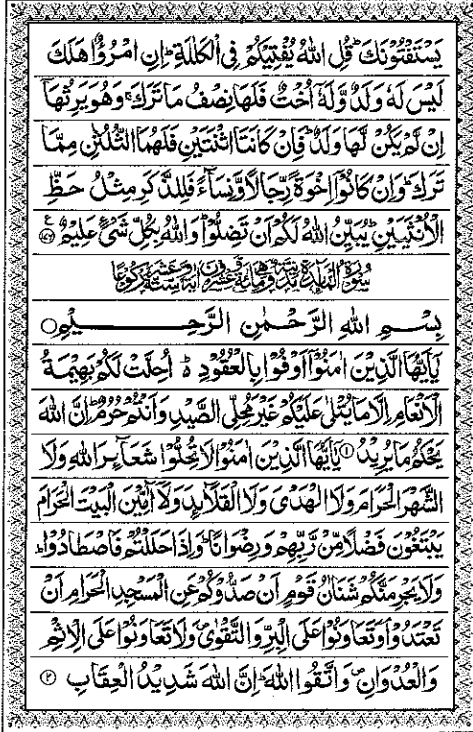 يَسْتَفْتُوْنَكَ ؕ قُلِ اللّٰهُ يُفْتِيْكُمْ فِي الْكَلٰلَةِ ؕ اِنِ امْرُؤٌا هَلَكَ
لَيْسَ لَهٗ وَلَدٌ وَّلَهٗۤ اُخْتٌ فَلَهَا نِصْفُ مَا تَرَكَ ۚ وَهُوَ يَرِثُهَاۤ
اِنْ لَّمْ يَكُنْ لَّهَا وَلَدٌ ؕ فَاِنْ كَانَتَا اثْنَتَيْنِ فَلَهُمَا الثُّلُثٰنِ مِمَّا
تَرَكَ ؕ وَاِنْ كَانُوْۤا اِخْوَةً رِّجَالًا وَّنِسَآءً فَلِلذَّكَرِ مِثْلُ حَظِّ
الْاُنْثَيَيْنِ ؕ يُبَيِّنُ اللّٰهُ لَكُمْ اَنْ تَضِلُّوْا ؕ وَاللّٰهُ بِكُلِّ شَيْءٍ عَلِيْمٌ
بِسْمِ اللّٰهِ الرَّحْمٰنِ الرَّحِيْمِ ○
يٰۤاَيُّهَا الَّذِيْنَ اٰمَنُوْۤا اَوْفُوْا بِالْعُقُوْدِ ؕ اُحِلَّتْ لَكُمْ بَهِيْمَةُ
الْاَنْعَامِ اِلَّا مَا يُتْلٰى عَلَيْكُمْ غَيْرَ مُحِلِّي الصَّيْدِ وَاَنْتُمْ حُرُمٌ ؕ اِنَّ اللّٰهَ
يَحْكُمُ مَا يُرِيْدُ ۝۱ يٰۤاَيُّهَا الَّذِيْنَ اٰمَنُوْا لَا تُحِلُّوْا شَعَآىِٕرَ اللّٰهِ وَلَا
الشَّهْرَ الْحَرَامَ وَلَا الْهَدْيَ وَلَا الْقَلَآىِٕدَ وَلَاۤ اٰمِّيْنَ الْبَيْتَ الْحَرَامَ
يَبْتَغُوْنَ فَضْلًا مِّنْ رَّبِّهِمْ وَرِضْوَانًا ؕ وَاِذَا حَلَلْتُمْ فَاصْطَادُوْا ؕ
وَلَا يَجْرِمَنَّكُمْ شَنَاٰنُ قَوْمٍ اَنْ صَدُّوْكُمْ عَنِ الْمَسْجِدِ الْحَرَامِ اَنْ
تَعْتَدُوْا ۘ وَتَعَاوَنُوْا عَلَى الْبِرِّ وَالتَّقْوٰى ۪ وَلَا تَعَاوَنُوْا عَلَى الْاِثْمِ
وَالْعُدْوَانِ ۪ وَاتَّقُوا اللّٰهَ ؕ اِنَّ اللّٰهَ شَدِيْدُ الْعِقَابِ ۝۲